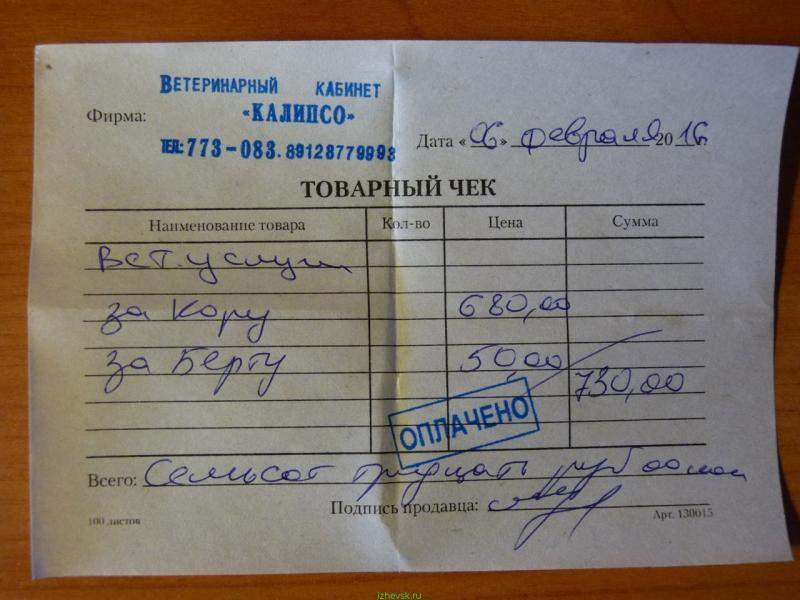 ВЕТЕРИНАРНЫЙ КАБИНЕТ
Фирма: «КАЛИПСО»
ТЕЛ: 773-083. 89128779993
Дата «06» февраля 2016
ТОВАРНЫЙ ЧЕК
Наименование товара Кол-во Цена Сумма
Вет. услуги
за Кору 680,00
за Берту 50,00
730,00
ОПЛАЧЕНО
Всего: Семьсот тридцать руб 00 коп
Подпись продавца:
100 листов Арт. 130015
izhevsk.ru